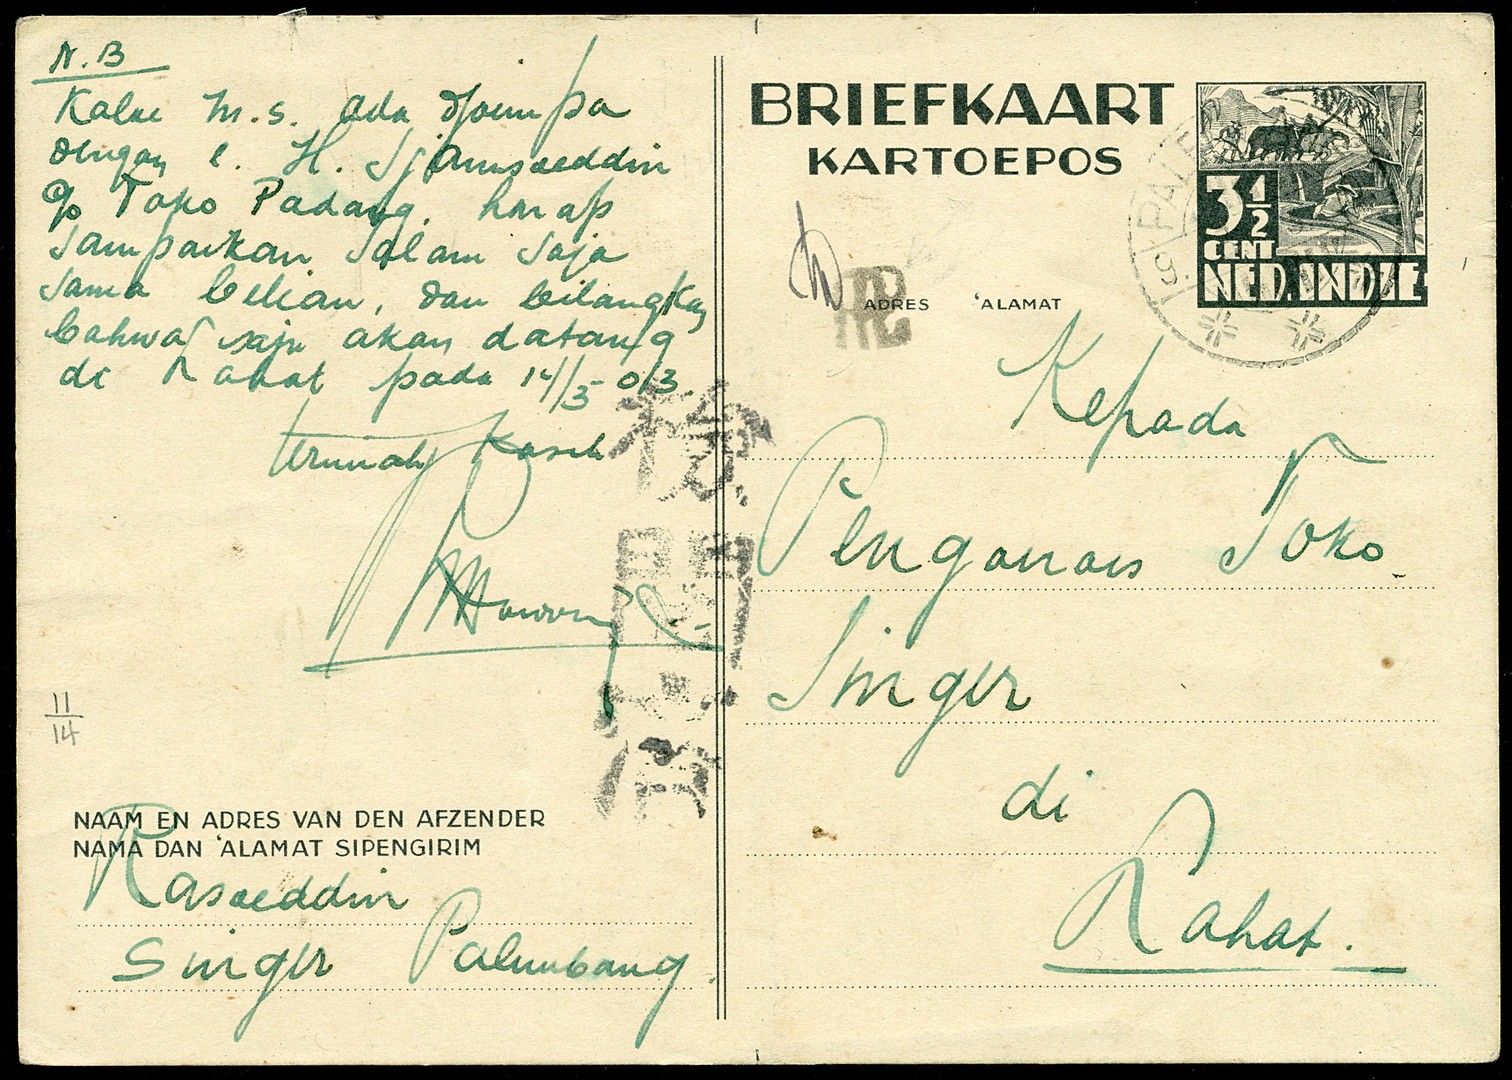 N.B
Kalau m.s. ada djoempa
dengan e. H. Sjamsoeddin
p/o Toko Padang, harap
sampaikan salam saja
sama belian, dan bilangkan
bahwa saja akan datang
di Lahat pada 14/5-03.
terimah kasih
NAAM EN ADRES VAN DEN AFZENDER
NAMA DAN 'ALAMAT SIPENGIRIM
Rasoeddin
Singer Palembang
11/14
BRIEFKAART
KARTOEPOS
3 1/2
CENT
NED. INDIE
ADRES 'ALAMAT
Kepada
Pengoeroes Toko
Singer
di
Lahat.